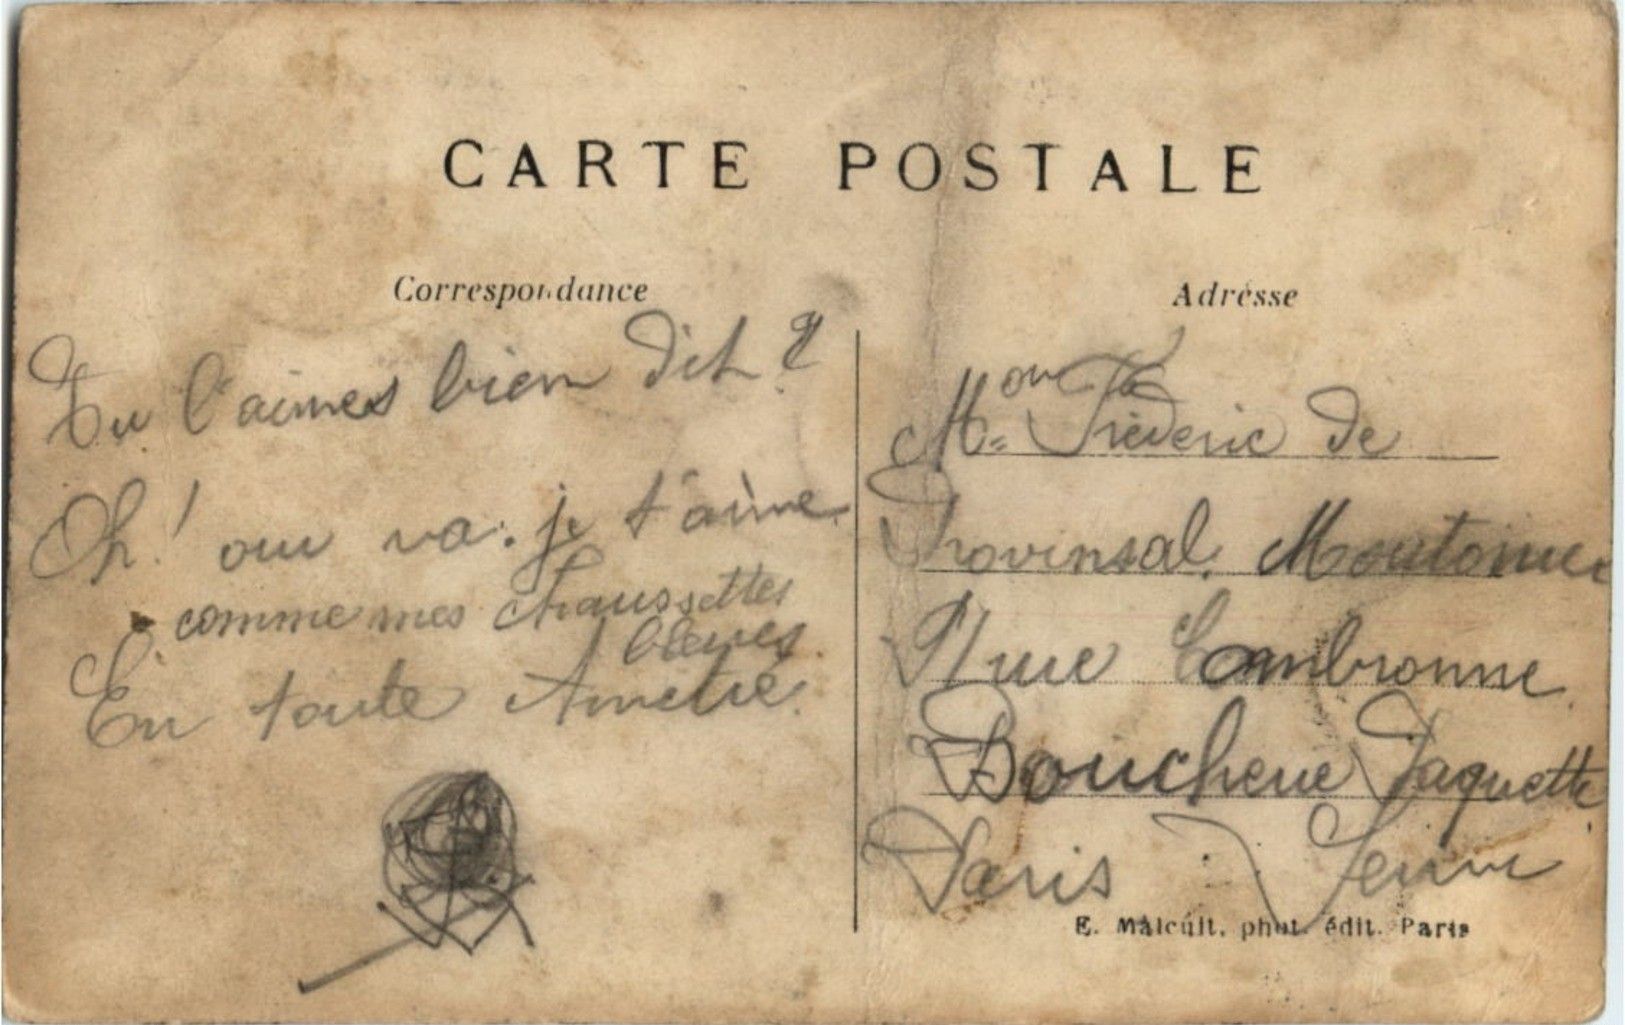 CARTE POSTALE
Correspondance
Tu l'aimes bien dit ?
Oh! oui va. je t'aime
comme mes chaussettes
bleues.
En toute Ametié.
Adresse
Mon Fréderic de
Provinsal. Moutonier
9 rue Cambronne.
Boucherie Jaquette
Paris Seine
E. Malcuit, phot. édit. Paris